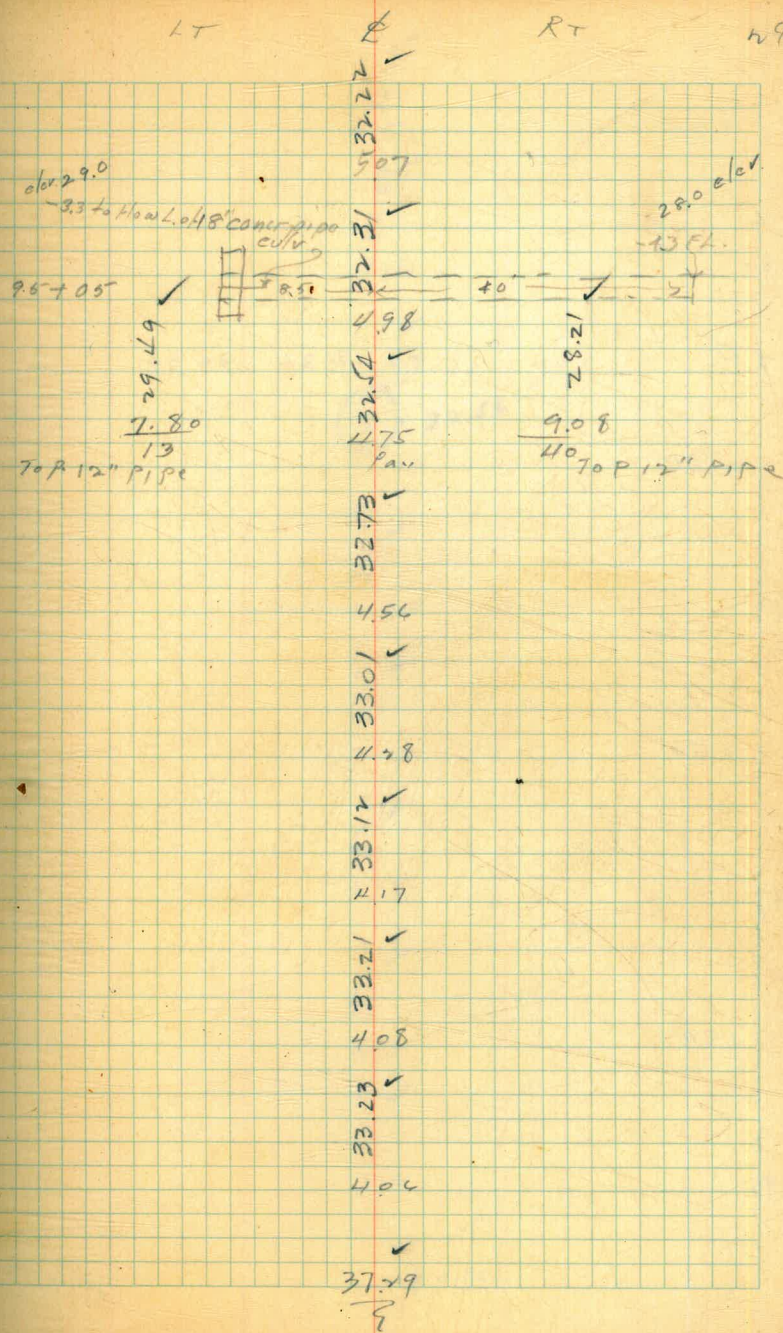 LT ℄ RT
32.22 ✓
507
elev. 29.0
28.0 elev.
-3.3 to Flow L. of 18" concr pipe
culv
32.31 ✓
-4.3 FL.
9.5 + 05 8.5 40 2
29.49 ✓
4.98
28.21 ✓
32.54 ✓
7.80
13
4.75
Pav.
9.08
40
Top 12" Pipe
Top 12" Pipe
32.73 ✓
4.56
33.01 ✓
4.28
33.12 ✓
4.17
33.21 ✓
4.08
33.23 ✓
4.06
✓
37.29